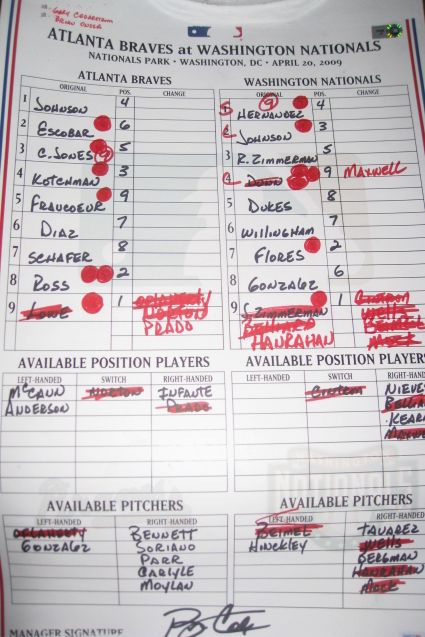 GARY CEDERSTROM
BRIAN
ATLANTA BRAVES at WASHINGTON NATIONALS
NATIONALS PARK • WASHINGTON, DC • APRIL 20, 2009
ATLANTA BRAVES
ORIGINAL POS. CHANGE
1 JOHNSON 4
2 ESCOBAR 6
3 C. JONES 9 5
4 KOTCHMAN 3
5 FRANCOEUR 9
6 DIAZ 7
7 SCHAFER 8
8 ROSS 2
9 LOWE 1 O'FLAHERTY
NORTON
PRADO
WASHINGTON NATIONALS
ORIGINAL POS. CHANGE
1 S HERNANDEZ 9 4
2 L JOHNSON 3
3 R. ZIMMERMAN 5
4 L DUNN 9 MAXWELL
5 DUKES 8
6 WILLINGHAM 7
7 FLORES 2
8 GONZALEZ 6
9 J. ZIMMERMAN 1
WELLS
HANRAHAN
MOCK
AVAILABLE POSITION PLAYERS
LEFT-HANDED SWITCH RIGHT-HANDED
McCANN NORTON INFANTE
ANDERSON PRADO
AVAILABLE POSITION PLAYERS
LEFT-HANDED SWITCH RIGHT-HANDED
NIEVES
AVAILABLE PITCHERS
LEFT-HANDED RIGHT-HANDED
O'FLAHERTY BENNETT
GONZALEZ SORIANO
PARR
CARLYLE
MOYLAN
AVAILABLE PITCHERS
LEFT-HANDED RIGHT-HANDED
BEIMEL TAVAREZ
HINCKLEY WELLS
BERGMAN
HANRAHAN
MOCK
MANAGER SIGNATURE